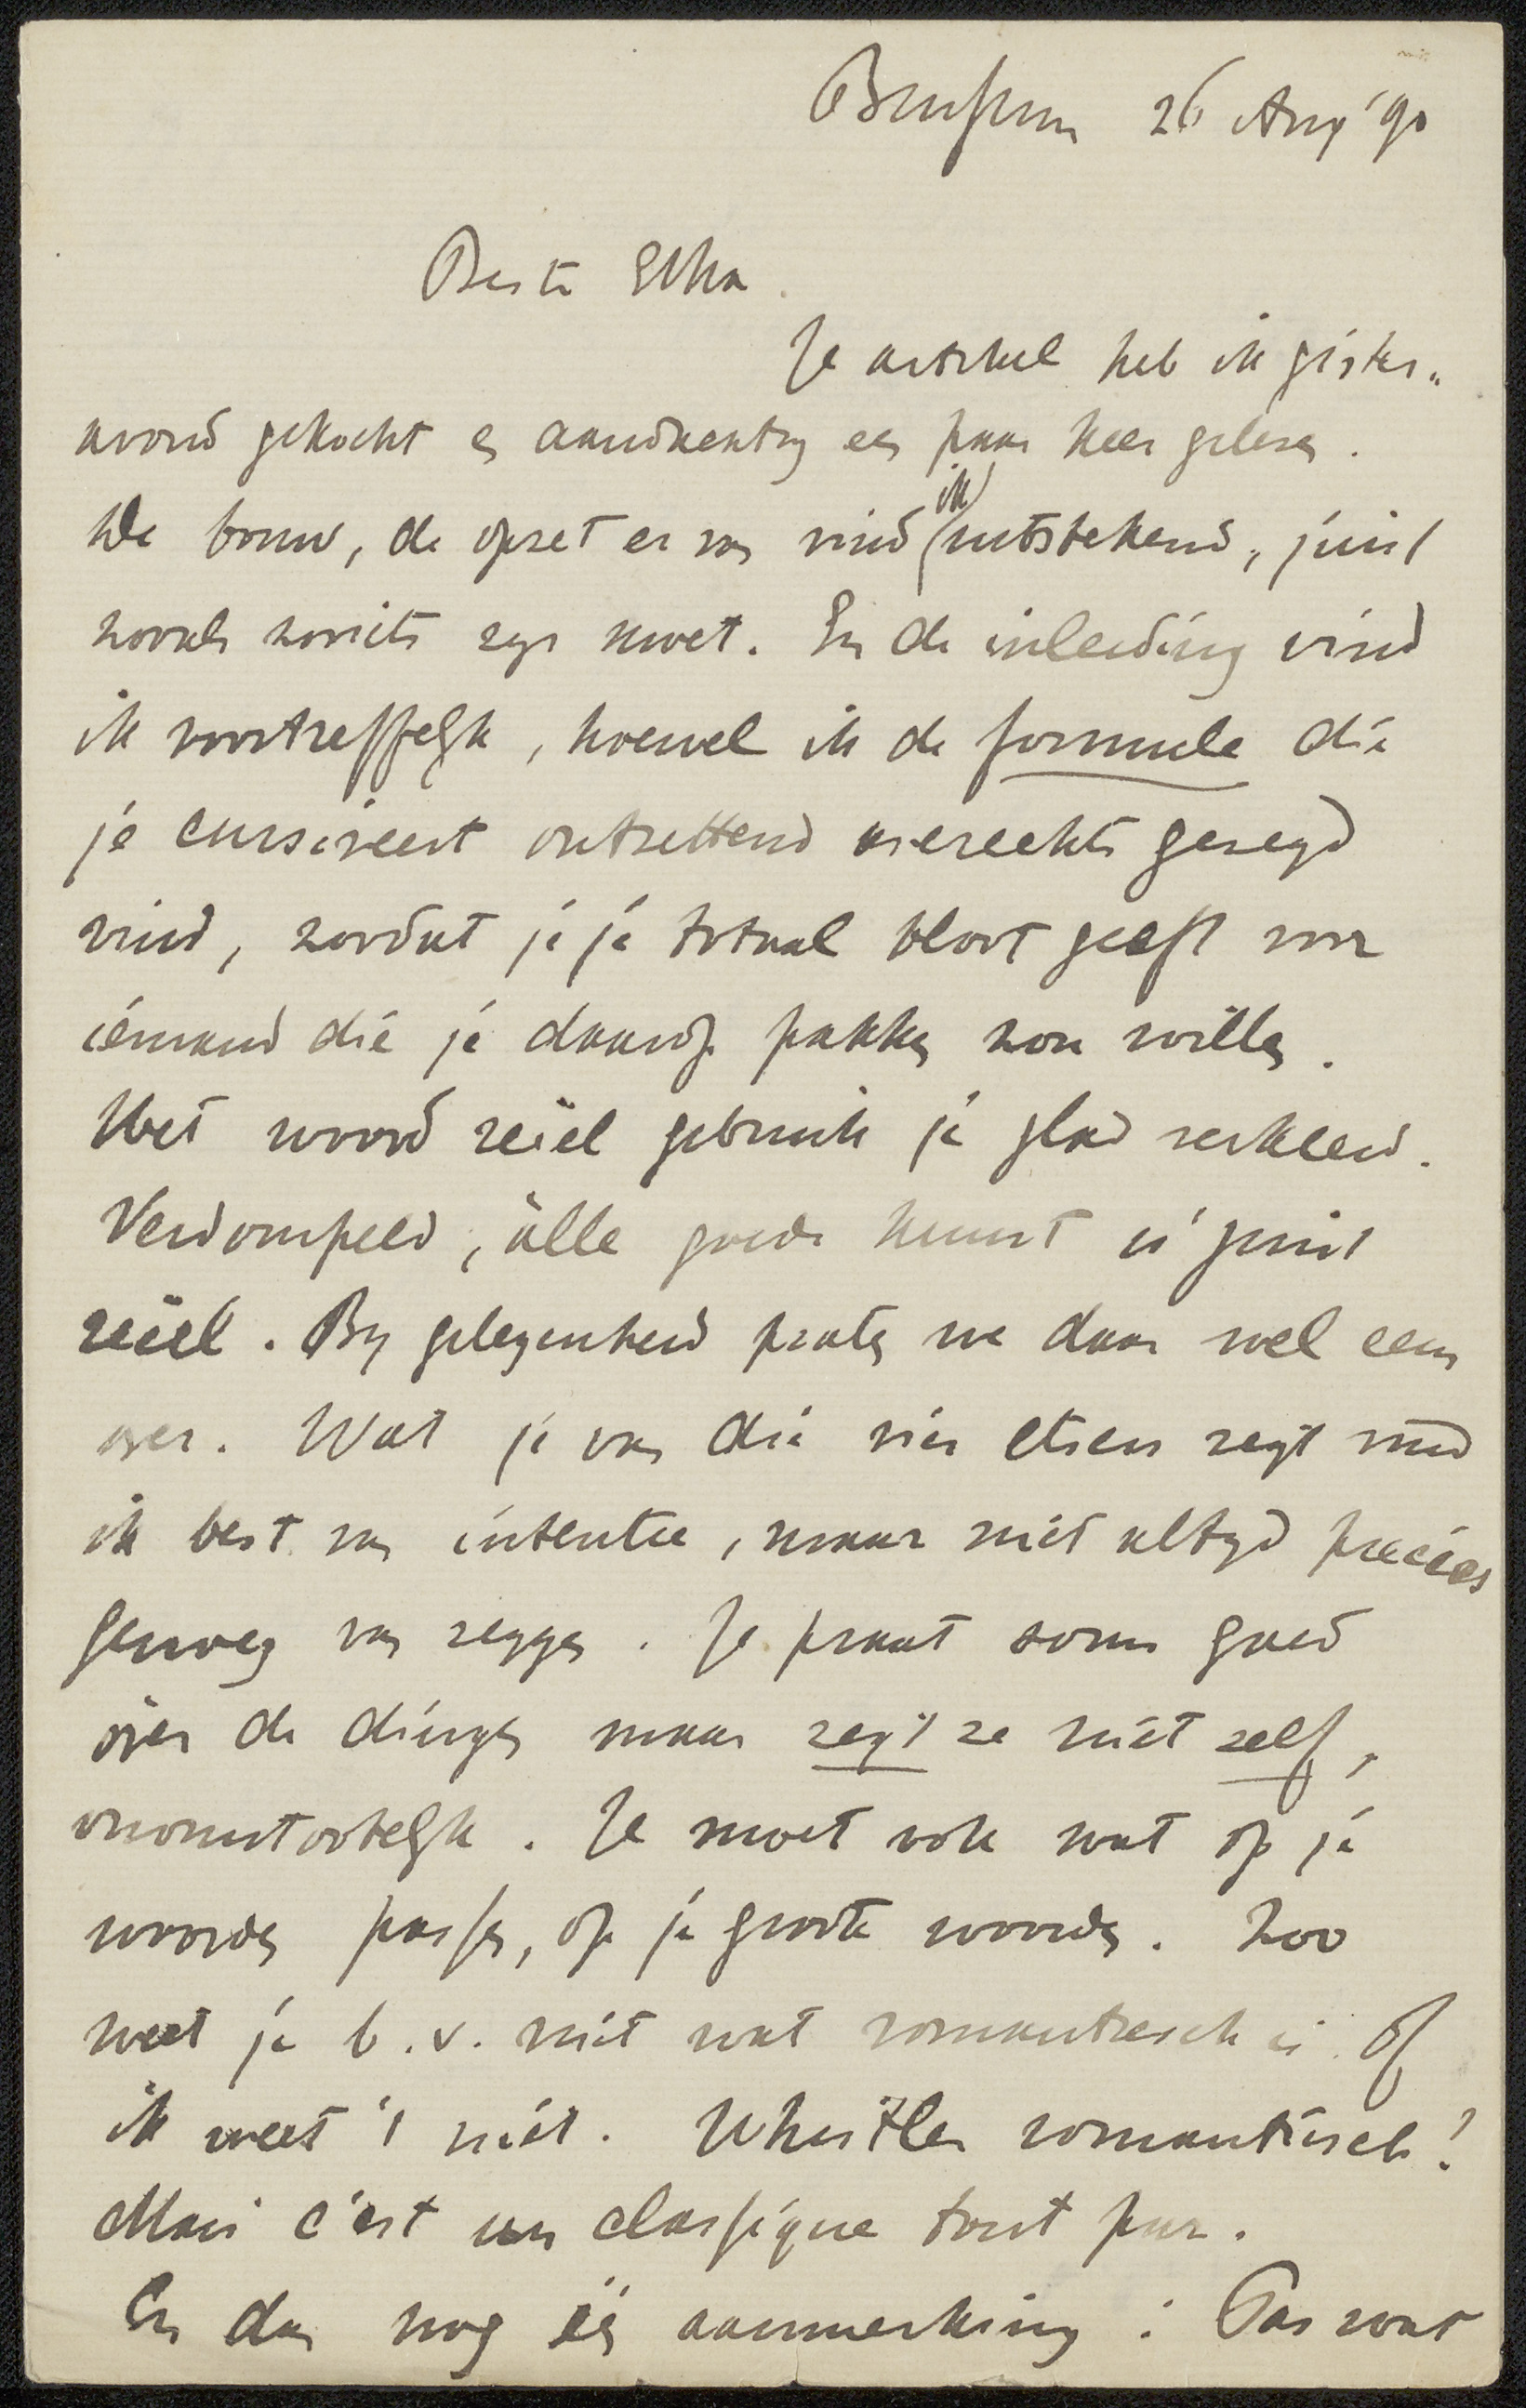 Bussum 26 Aug '90
Beste Etha.
Je artikel heb ik gister-
avond gekocht en aandachtig een paar keer gelezen.
De bouw, de opzet er van vind ik uitstekend, juist
zooals zooiets zyn moet. En de inleiding vind
ik voortreffelyk, hoewel ik de formule die
je cursiveert ontzettend averechts gezegd
vind, zoodat je je totaal bloot geeft voor
iémand die je daarop pakken zou willen.
Het woord reëel gebruik je glad verkeerd.
Verdompeld, álle goede kunst is juist
reëel. By gelegenheid praten we daar wel eens
over. Wat je van die vier etsers zegt vind
ik best van intentie, maar niet altyd precies
genoeg van zeggen. Je praat soms goed
óver de dingen maar zegt ze niet zelf,
onomstootelyk. Je moet ook wat op je
woorden passen, op je groote woorden. Zoo
weet je b.v. niet wat romantiesch is. Of
ik weet 't niet. Whistler romantiesch!
Mais c'est un classique tout pur.
En dan nog één aanmerking: Pas wat